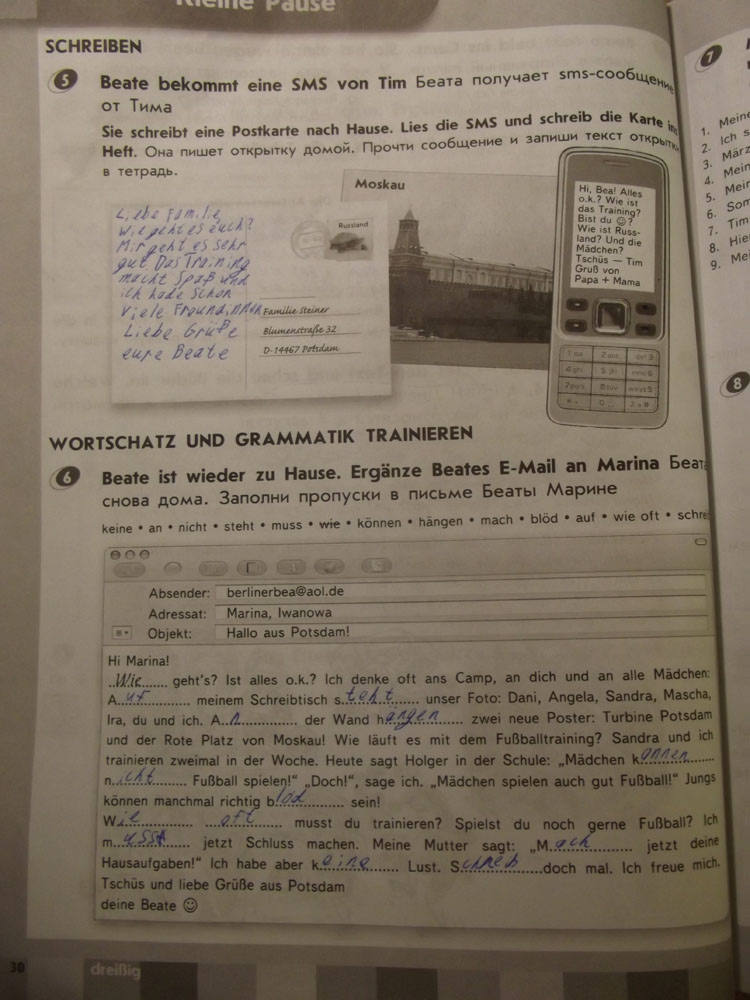 Kleine Pause
SCHREIBEN
5 Beate bekommt eine SMS von Tim Беата получает sms-сообщение
от Тима
Sie schreibt eine Postkarte nach Hause. Lies die SMS und schreib die Karte ins
Heft. Она пишет открытку домой. Прочти сообщение и запиши текст открытки
в тетрадь.
Liebe Familie,
wie geht es euch?
Mir geht es sehr
gut Das Training
macht Spaß und
ich habe schon
viele Freundinnen
Liebe Grüße
eure Beate
Russland
Familie Steiner
Blumenstraße 32
D-14467 Potsdam
Moskau
Hi, Bea! Alles
o.k.? Wie ist
das Training?
Bist du ☺?
Wie ist Russ-
land? Und die
Mädchen?
Tschüs — Tim
Gruß von
Papa + Mama
WORTSCHATZ UND GRAMMATIK TRAINIEREN
6 Beate ist wieder zu Hause. Ergänze Beates E-Mail an Marina Беата
снова дома. Заполни пропуски в письме Беаты Марине
keine • an • nicht • steht • muss • wie • können • hängen • mach • blöd • auf • wie oft • schre
Absender: berlinerbea@aol.de
Adressat: Marina, Iwanowa
Objekt: Hallo aus Potsdam!
Hi Marina!
..Wie...... geht's? Ist alles o.k.? Ich denke oft ans Camp, an dich und an alle Mädchen:
Auf............ meinem Schreibtisch steht...... unser Foto: Dani, Angela, Sandra, Mascha,
Ira, du und ich. An............ der Wand hangen...... zwei neue Poster: Turbine Potsdam
und der Rote Platz von Moskau! Wie läuft es mit dem Fußballtraining? Sandra und ich
trainieren zweimal in der Woche. Heute sagt Holger in der Schule: „Mädchen konnen......
nicht...... Fußball spielen!" „Doch!", sage ich. „Mädchen spielen auch gut Fußball!" Jungs
können manchmal richtig blod......... sein!
Wie...... ...oft...... musst du trainieren? Spielst du noch gerne Fußball? Ich
musst...... jetzt Schluss machen. Meine Mutter sagt: „Mach......... jetzt deine
Hausaufgaben!" Ich habe aber keine...... Lust. Schreib......doch mal. Ich freue mich.
Tschüs und liebe Grüße aus Potsdam
deine Beate ☺
30 dreißig
7
1. Meine
2. Ich s
3. März
4. Mein
5. Mein
6. Som
7. Tim
8. Hie
9. Me
8